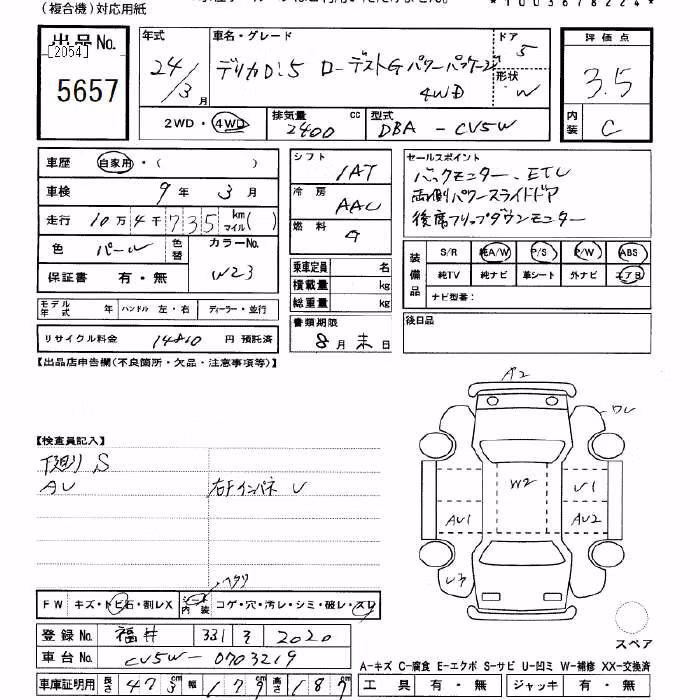 (複合機)対応用紙
*1003678224*
出品No.
[2054]
5657
年式
24/3月
車名・グレード
デリカD:5 ローデストGパワーパッケージ
4WD
ドア
5
形状
W
評価点
3.5
内装
C
2WD・4WD
排気量
2400 cc
型式
DBA - CV5W
車歴
自家用・( )
車検
9年3月
走行
10万4千735 km マイル( )
色
パール
色替
カラーNo.
W23
保証書 有・無
モデル年式 年 ハンドル 左・右 ディーラー・並行
リサイクル料金 14810 円 預託済
シフト
1AT
冷房
AAC
燃料
G
乗車定員 名
積載量 kg
総重量 kg
書類期限
8月末日
セールスポイント
バックモニター、ETC
両側パワースライドドア
後席フリップダウンモニター
装備品
S/R 純A/W P/S P/W ABS
純TV 純ナビ 革シート 外ナビ エアB
ナビ型番:
後日品
【出品店申告欄(不良箇所・欠品・注意事項等)】
【検査員記入】
下廻り S
AU 右Fインパネ U
A2
ワレ
W2
U1
AU1
AU2
U3
スペア
ヘタリ
FW キズ・トビ石・割レX
シート内装 コゲ・穴・汚レ・シミ・破レ・スレ
登録No. 福井 331 2020
車台No. CV5W-0703219
車庫証明用 長さ 473cm 幅 179cm 高さ 187cm
A-キズ C-腐食 E-エクボ S-サビ U-凹ミ W-補修 XX-交換済
工具 有・無 ジャッキ 有・無